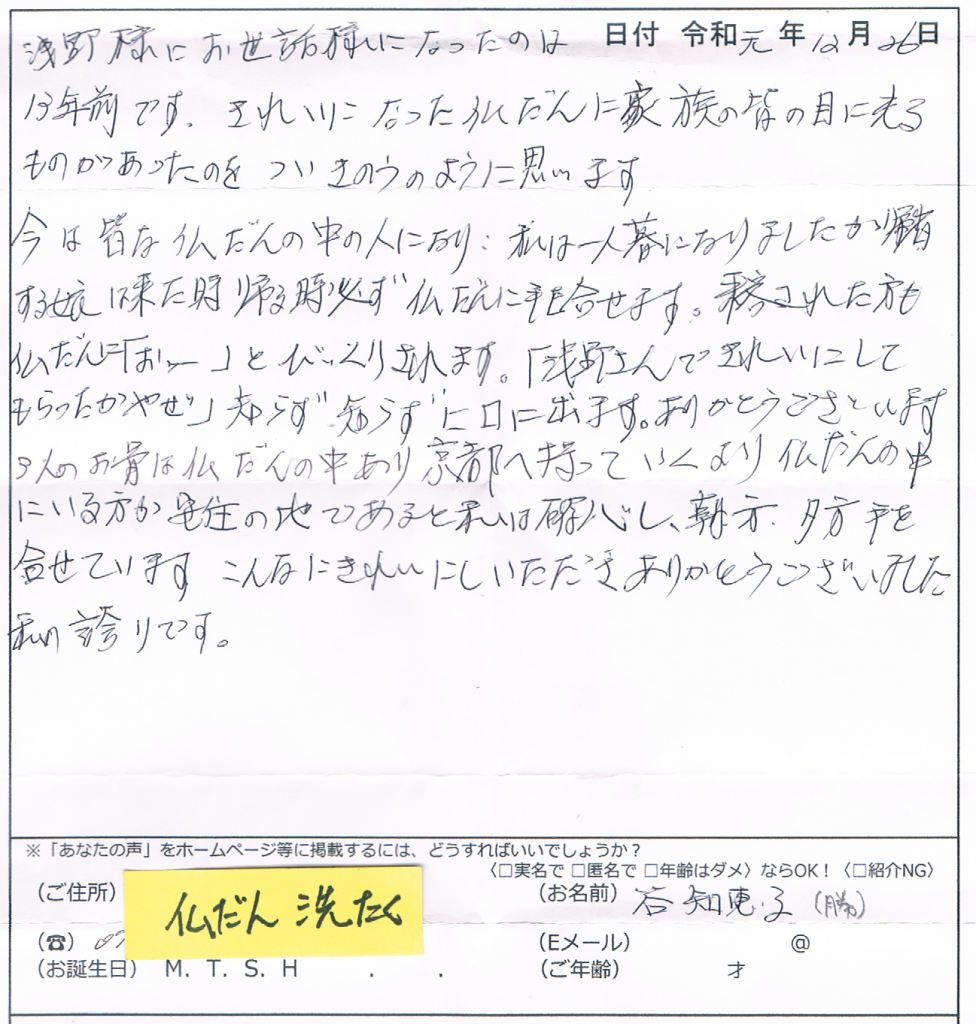 日付 令和元年12月26日
浅野様にお世話様になったのは
13年前です。きれいになった仏だんに家族の皆の目に光る
ものがあったのをついきのうのように思います
今は皆な仏だんの中の人になり: 私は一人暮になりましたが
する娘は来た時帰る時必ず仏だんに手を合せます。来客された方も
仏だんに「おゝー」とびっくりされます。「浅野さんできれいにして
もらったがやぜ」知らず知らずに口に出ます。ありがとうございます
3人のお骨は仏だんの中あり京都へ持っていくより仏だんの中
にいる方が安住の地であると私は確心し、朝方、夕方手を
合せています こんなにきれいにしいただきありがとうございました
私の誇りです。
※「あなたの声」をホームページ等に掲載するには、どうすればいいでしょうか？
〈□実名で □匿名で □年齢はダメ〉ならOK！〈□紹介NG〉
（ご住所） 仏だん 洗たく （お名前） 谷 知恵子（勝）
（☎） （Eメール） @
（お誕生日） M. T. S. H . . （ご年齢） 才